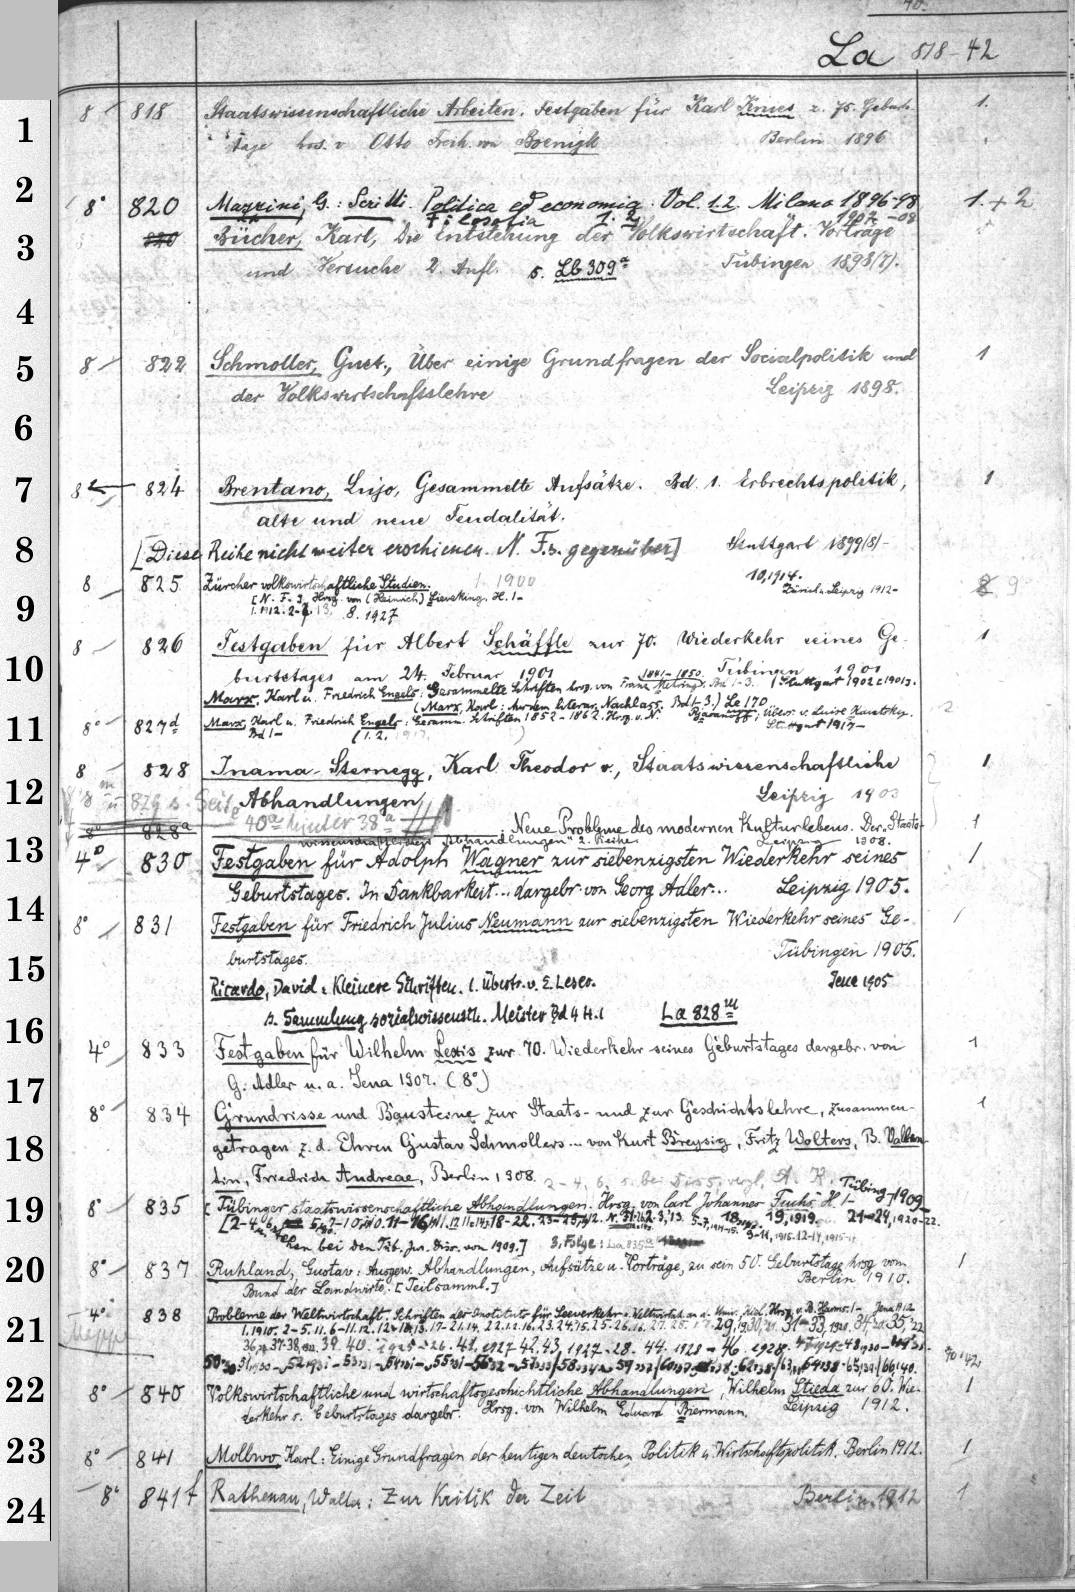 40.
La 818-42
1
8 818 Staatswissenschaftliche Arbeiten. Festgaben für Karl Knies z. 75. Geburts- 1.
tage hrs. v Otto Freih. von Boenigk Berlin 1896
2
8° 820 Mazzini, G: Scritti. Politica ed economia. Vol. 1.2. Milano 1896-98 1. + 2
Filosofia 1. 2. 1907-08
3
820 Bücher, Karl, Die Entstehung der Volkswirtschaft. Vorträge
und Versuche 2. Aufl. s. Lb 309ª Tübingen 1898(7).
4
5
8 822 Schmoller, Gust., Über einige Grundfragen der Socialpolitik und 1
der Volkswirtschaftslehre Leipzig 1898.
6
7
8 824 Brentano, Lujo, Gesammelte Aufsätze. Bd. 1. Erbrechtspolitik, 1
alte und neue Feudalität.
8
[Diese Reihe nicht weiter erschienen. N. F. s. gegenüber] Stuttgart 1899(8)-
8 825 Zürcher volkswirtschaftliche Studien. 1. 1900 10,1914. 9
9
[N. F. 3. Hrsg. von (Heinrich) Sieveking. H. 1- Zürich u. Leipzig 1912-
8. 1927
8 826 Festgaben für Albert Schäffle zur 70. Wiederkehr seines Ge- 1
10
burtstages am 24. Februar 1901 Tübingen 1901
Marx, Karl u. Friedrich Engels: Gesammelte Schriften hrsg. von Franz Mehring. 1841-1850. Bd 1-3. Stuttgart 1902 (1901).
(Marx, Karl: Aus dem literar. Nachlass. Bd 1-3.) Le 170
11
8° 827d Marx, Karl u. Friedrich Engels: Gesamm. Schriften 1852-1862. Hrsg. v. N. Rjasanoff; Übers. v. Luise Kautsky. 2
Bd 1- (1.2. 1917.) Stuttgart 1917-
8 828 Inama-Sternegg, Karl Theodor v., Staatswissenschaftliche 1
12
Abhandlungen Leipzig 1903
829 s. Seite 40ª hinter 38ª
8° 828ª Neue Probleme des modernen Kulturlebens. Der „Staats- 1
wissenschaftlichen Abhandlungen" 2. Reihe. Leipzig 1908.
13
4° 830 Festgaben für Adolph Wagner zur siebenzigsten Wiederkehr seines 1
Geburtstages. In Dankbarkeit... dargebr. von Georg Adler... Leipzig 1905.
14
8° 831 Festgaben für Friedrich Julius Neumann zur siebenzigsten Wiederkehr seines Ge- 1
burtstages. Tübingen 1905.
15
Ricardo, David: Kleinere Schriften. 1. übertr. v. E. Leser. Jena 1905
s. Sammlung sozialwissensch. Meister Bd 4 H.1 La 828m
16
4° 833 Festgaben für Wilhelm Lexis zur 70. Wiederkehr seines Geburtstages dargebr. von 1
17
G. Adler u. a. Jena 1907. (8°)
8° 834 Grundrisse und Bausteine zur Staats- und zur Geschichtslehre, zusammen- 1
18
getragen z. d. Ehren Gustav Schmollers... von Kurt Breysig, Fritz Wolters, B. Vallen-
tin, Friedrich Andreae, Berlin 1908. 2-4, 6, s. bei Diss. vergl. A. K.
19
8° 835 [Tübinger staatswissenschaftliche Abhandlungen. Hrsg. von Carl Johannes Fuchs. H. 1- Tübing. 1909-
19,1919. 21-24,1920-22.
bei den Tüb. jur. Diss. von 1909.] 3. Folge: La 835ª
20
8° 837 Ruhland, Gustav: Ausgew. Abhandlungen, Aufsätze u. Vorträge, zu sein 50. Geburtstage hrsg. vom 1
Bund der Landwirte. [Teilsamml.] Berlin 1910.
4° 838 Probleme der Weltwirtschaft. Schriften des Instituts für Seeverkehr u. Weltwirtsch. an d. Univ. Kiel. Hrsg. v. B. Harms. 1- Jena 1912
21
22
8° 840 Volkswirtschaftliche und wirtschaftsgeschichtliche Abhandlungen, Wilhelm Stieda zur 60. Wie- 1
derkehr s. Geburtstages dargebr. Hrsg. von Wilhelm Eduard Biermann. Leipzig 1912.
23
8° 841 Mollwo, Karl: Einige Grundfragen der heutigen deutschen Politik u. Wirtschaftspolitik. Berlin 1912. 1
24
8° 841f Rathenau, Walter: Zur Kritik der Zeit Berlin 1912 1